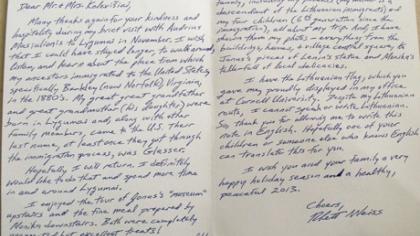 Dear Mr + Mrs. Kalavišiai,
Many thanks again for your kindness and
hospitality during my brief visit with
Massulionis to Lygumai in November. I wish
I could have stayed longer, to walk around
today and learn about the place from which
my ancestors immigrated to the United States,
specifically Berkley (now Norfolk) Virginia,
in the 1880's. My great great grandfather
and great grandmother (his daughter) were
born in Lygumai and, along with other
family members, came to the U.S. Their
last name, at least once they got through
the immigration process, was Glasser.
Hopefully I will return. I definitely
would like to do that and spend more time
in and around Lygumai.
I enjoyed the tour of Jonas's "museum"
upstairs and the fine meal prepared by
downstairs. Both were completely
but excellent treats!
family, including my
descendant of the Lithuanian immigrants) and
my four children (6th generation since the
immigration), all about my trip. And I have
shown them my photos - everything from the
buildings, homes, + village central square, to
Jonas's pieces of Lenin's statue and
table full of local delicacies.
I have the Lithuanian flag, which you
gave me proudly displayed in my office
at Cornell University. Despite my Lithuanian
roots, I cannot speak or write Lithuanian.
So, thank you for allowing me to write this
note in English. Hopefully one of your
children or someone else who knows English
can translate this for you.
I wish you and your family a very
happy holiday season and a healthy,
peaceful 2013.
Cheers,
Weiss